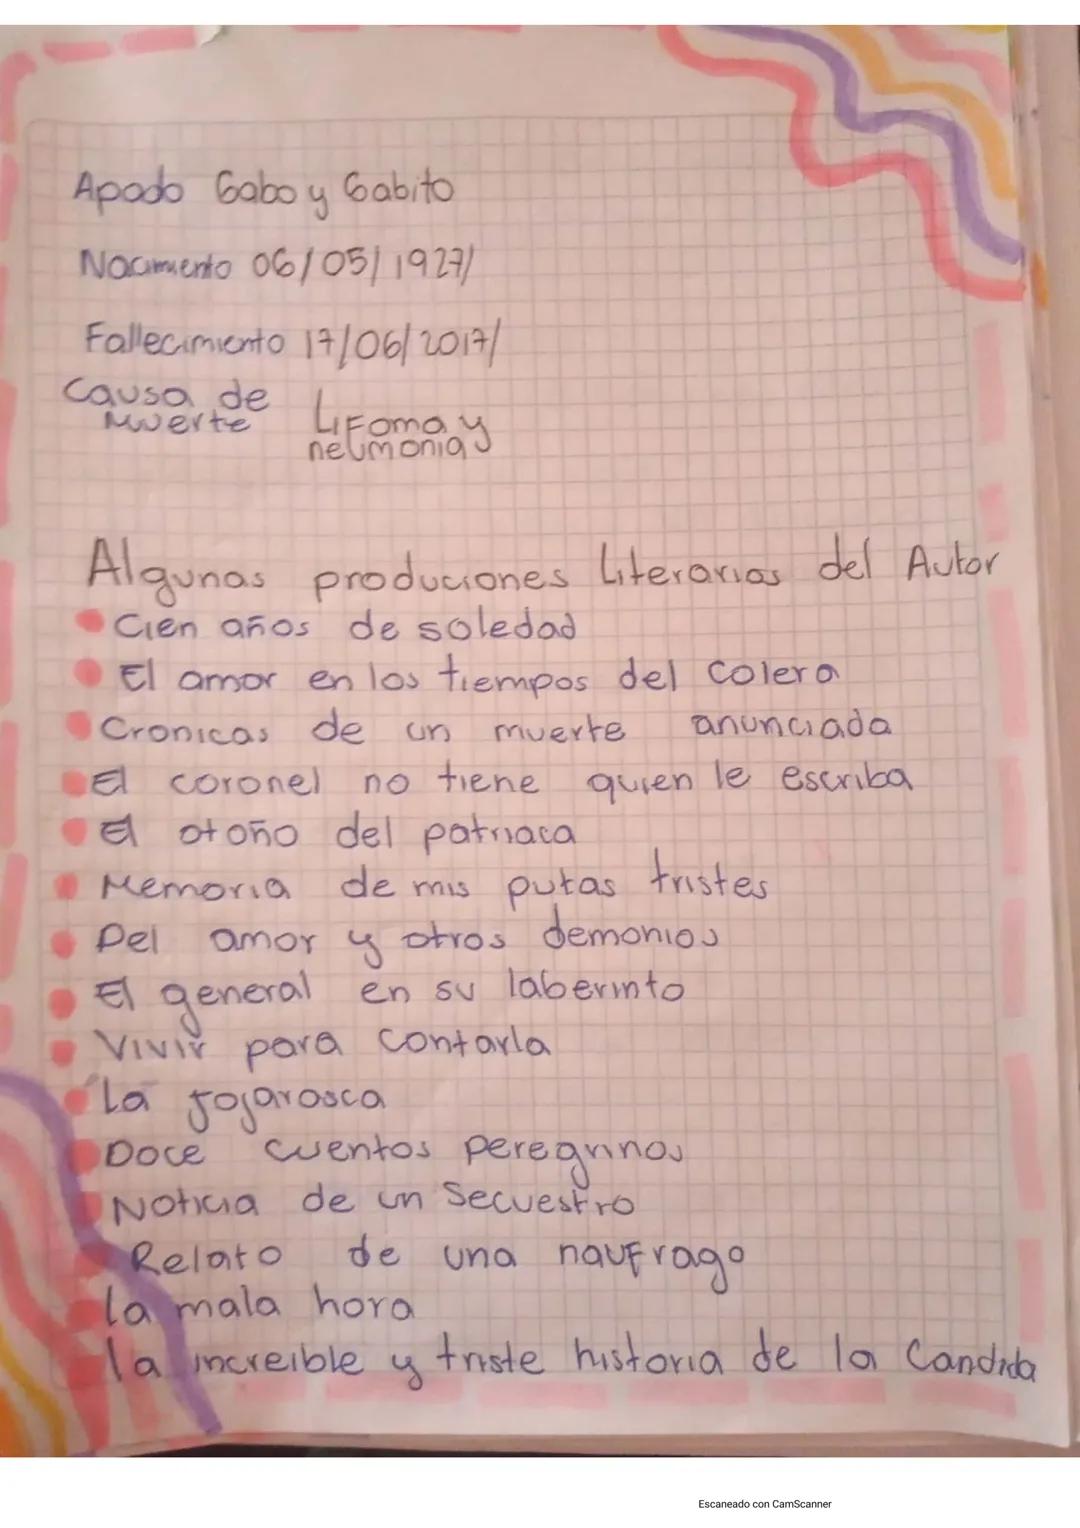 Apodo Gabo y Gabito
Nacimiento 06/05/1927/
Fallecimiento 17/06/2017/
Causa de Muerte
Lifoma y neumonia
Algunas produciones Literarias del Autor
Cien años de soledad
El amor en los tiempos del colera
Cronicas de un muerte anunciada
El coronel no tiene quien le escriba
El otoño del patriaca
Memoria de mis putas tristes
Del amor y otros demonios
El general en su laberinto
Vivir para contarla
La jojarasca
Doce cuentos peregrinos
Noticia de un Secuestro
Relato de una naufrago
la mala hora
la increible y triste historia de la Candida
Escaneado con CamScanner